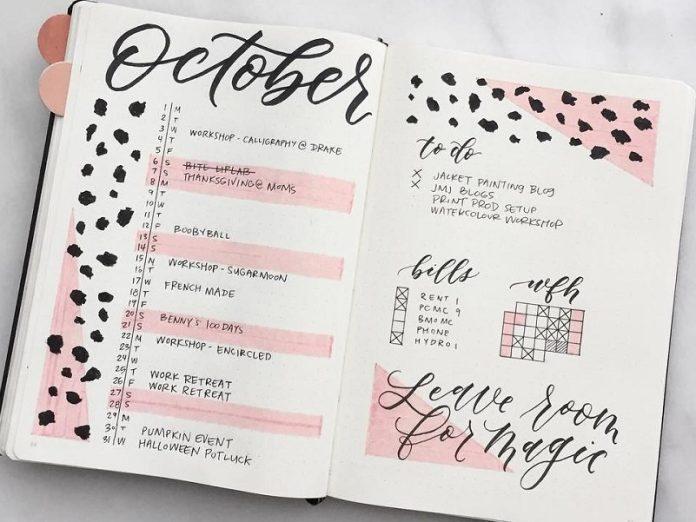 October
1 M
2 T
3 W WORKSHOP - CALLIGRAPHY @ DRAKE
4 T
5 F
6 S
7 S THANKSGIVING @ MOMS
8 M
9 T
10 W
11 T
12 F BOOBYBALL
13 S
14 S
15 M WORKSHOP - SUGARMOON
16 T
17 W FRENCH MADE
18 T
19 F
20 S BENNY'S 100 DAYS
21 S
22 M WORKSHOP - ENCIRCLED
23 T
24 W
25 T WORK RETREAT
26 F WORK RETREAT
27 S
28 S
29 M
30 T PUMPKIN EVENT
31 W HALLOWEEN POTLUCK
to do
X JACKET PAINTING BLOG
X JMJ BLOGS
PRINT PROD SETUP
WATERCOLOUR WORKSHOP
bills
RENT 1
PCMC 9
BMOMC
PHONE
HYDRO 1
wfh
Leave room
for magic